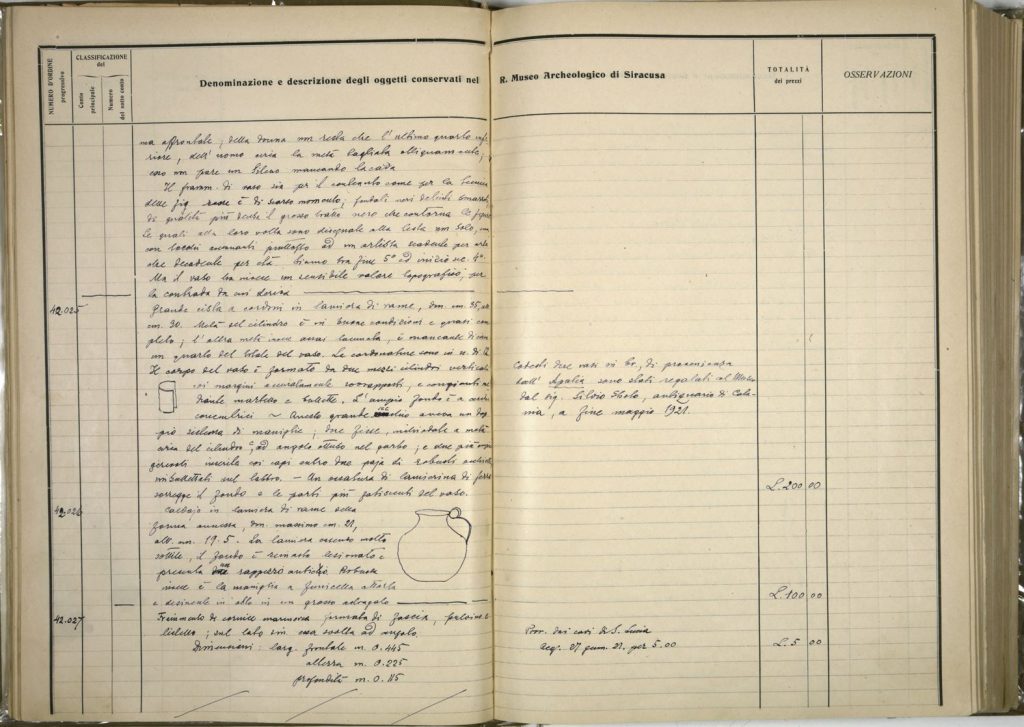 NUMERO D'ORDINE progressivo
CLASSIFICAZIONE del
Conto principale
Numero del sotto conto
Denominazione e descrizione degli oggetti conservati nel R. Museo Archeologico di Siracusa
TOTALITÀ dei prezzi
OSSERVAZIONI
ma affrontate; della donna non resta che l'ultimo quarto
riore, dell'uomo circa la metà tagliata obliquamente;
esso mi pare un Sileno mancando la coda
Il framm. di vaso sia per il contenuto come per la tecnica
delle fig. rosse è di scarso momento;
di qualità più il grosso tratto nero che contorna le figure
le quali alla loro volta sono disegnate alla testa
ad un artista scadente per arte
che decadente per età. Siamo tra fine 5° ed inizio sec. 4°.
Ma il vaso ha invece un sensibile valore topografico, per
la contrada da cui deriva
42.025
Grande cista a cordoni in lamiera di rame, dm. cm. 35, alt.
cm. 30. Metà del cilindro è in buone condizioni e quasi com
pleto; l'altra metà invece assai lacunata, è mancante di circa
un quarto del totale del vaso. Le cordonature sono in n. di 12
Il corpo del vaso è formato da due mezzi cilindri verticali
coi margini accuratamente sovrapposti, e congiunti me
diante martello e bullette. L'ampio fondo è a cerchi
concentrici ~ Questo grande aveva un dop
pio sistema di maniglie; due fisse, inchiodate a metà
circa del cilindro, ad angolo ottuso nel garbo; e due più
inserite coi capi entro due paja di robusti occhielli
imbullettati sul labbro. - Un ossatura di lamierina di ferro
sorregge il fondo e le parti più fatiscenti del vaso.
Cotesti due vasi in br., di provenienza
dall' Apulia sono stati regalati al Museo
dal sig. Silvio Sboto, antiquario di Cata-
nia, a fine maggio 1921.
L. 200 00
42.026
in lamiera di rame della
forma annessa, dm. massimo cm. 21,
alt. cm. 19.5. La lamiera essendo molto
sottile, il fondo è rimasto lesionato e
presenta un rappezzo antico. Robusta
invece è la maniglia a funicella ritorta
e desinente in alto in un grosso astragalo
L. 100 00
42.027
Frammento di cornice marmorea formata di fascia,
listello; sul lato sin. essa svolta ad angolo.
Dimensioni: larg. frontale m. 0.445
altezza m. 0.225
profondità m. 0.115
Prov. dai cavi di S. Lucia
Acq. 27 giun. 21. per 5.00
L. 5 00